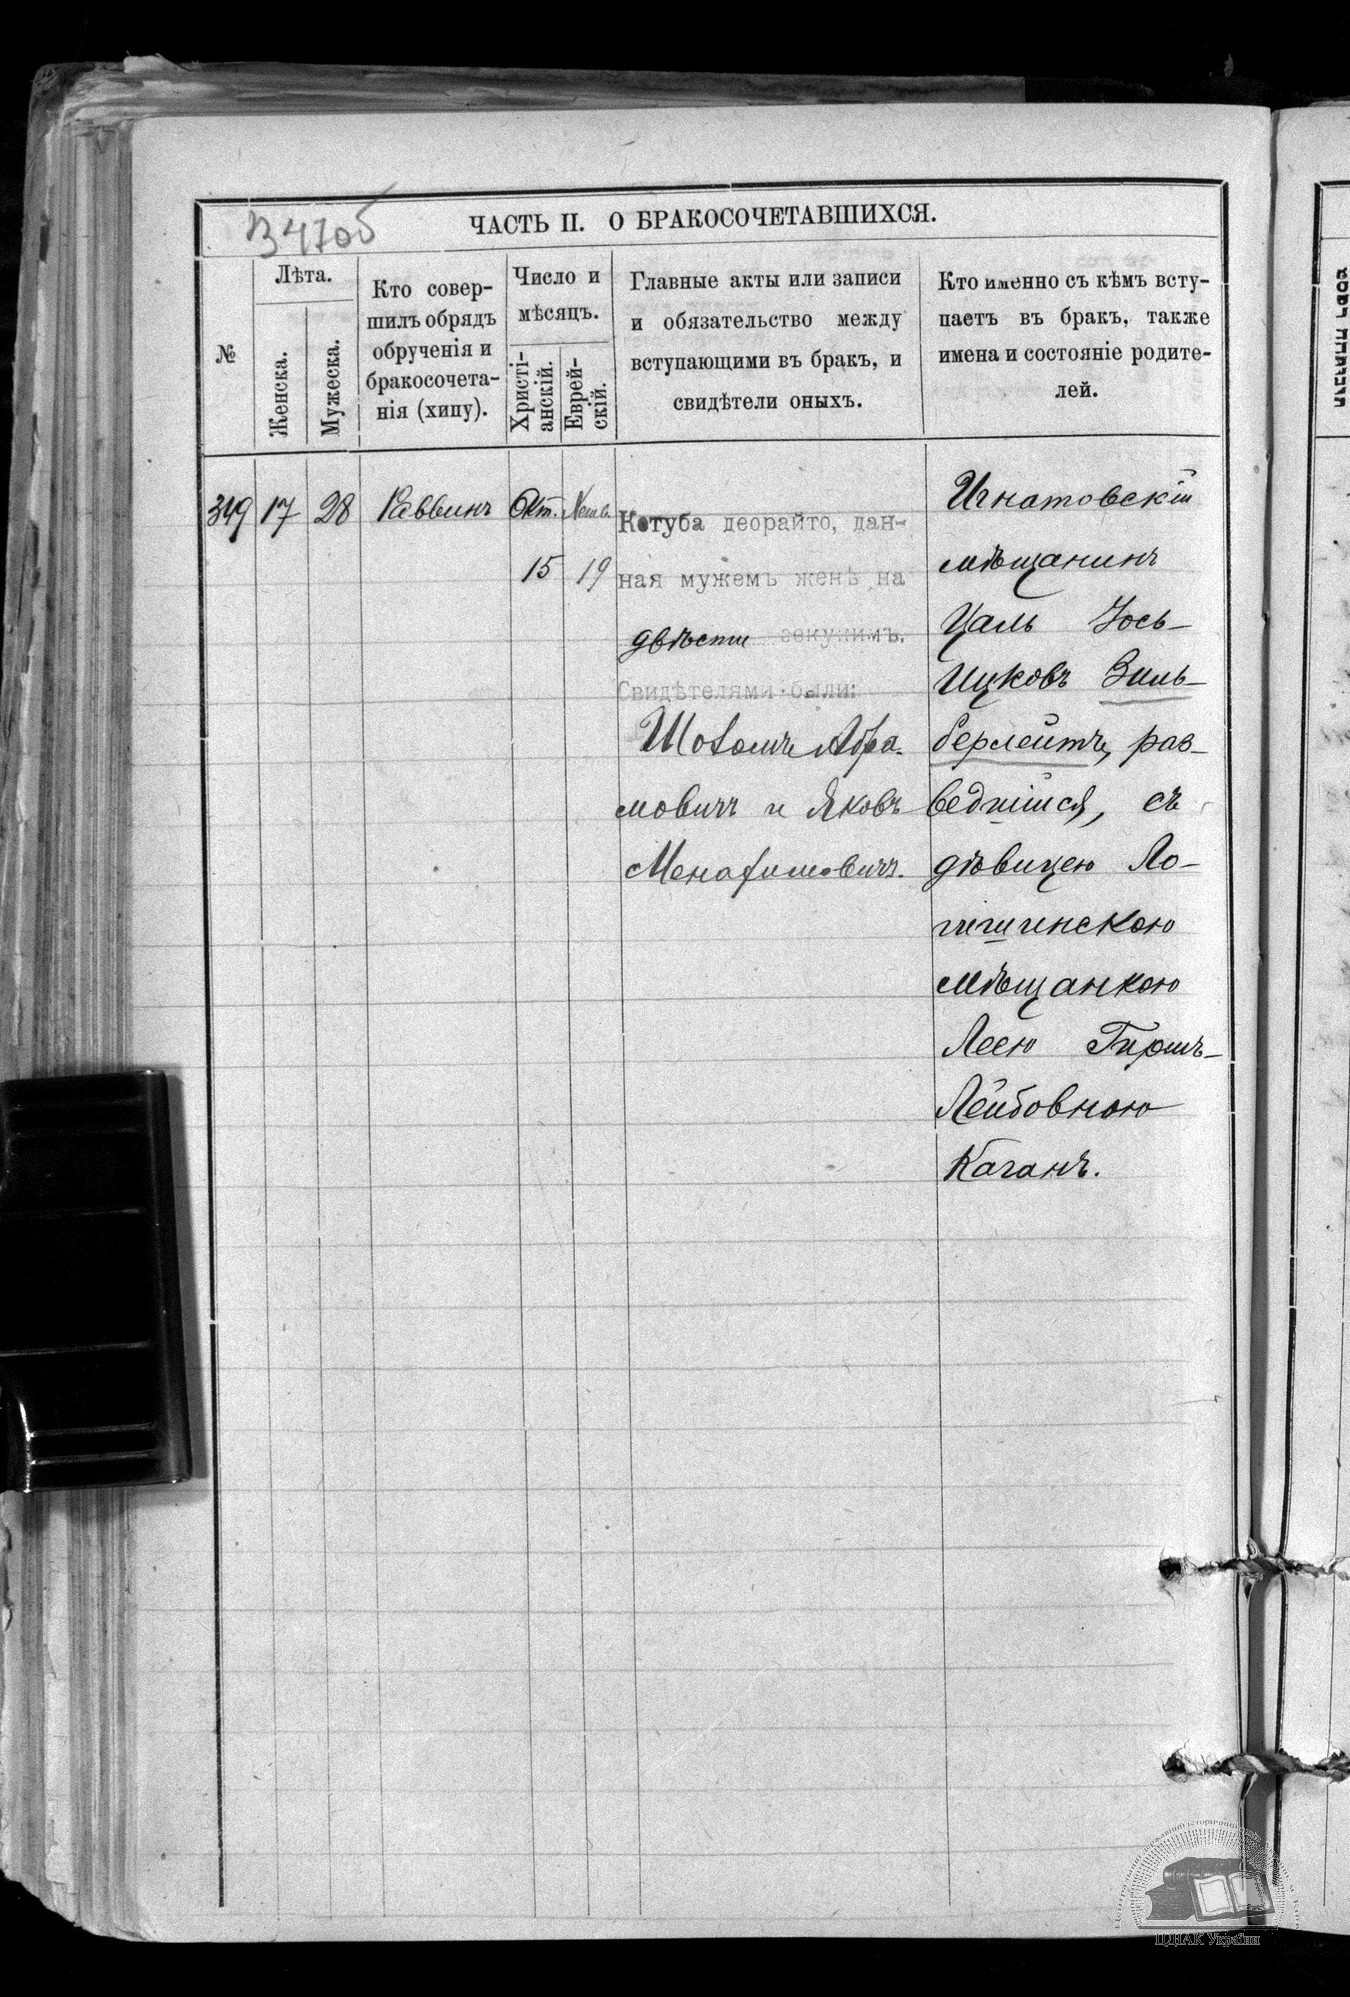 34705
ЧАСТЬ II. О БРАКОСОЧЕТАВШИХСЯ.
№
Лѣта.
Женска.
Мужеска.
Кто совер-
шилъ обрядъ
обрученія и
бракосочета-
нія (хипу).
Число и
мѣсяцъ.
Христі-
анскій.
Еврей-
скій.
Главные акты или записи
и обязательство между
вступающими въ бракъ, и
свидѣтели оныхъ.
Кто именно съ кѣмъ всту-
паетъ въ бракъ, также
имена и состояніе родите-
лей.
349 17 28 Раввинъ Окт. Хешв.
15 19
Кетуба деорайто, дан-
ная мужемъ женѣ на
двѣсти зекукимъ.
Свидѣтелями были:
Шоломъ Абра-
мовичъ и Яковъ
Менахимовичъ.
Игнатовскій
мѣщанинъ
Цаль Іось-
Ицковъ Зиль-
берлейтъ, раз-
ведшійся, съ
дѣвицею Ло-
гишинскою
мѣщанкою
Леею Гиршъ-
Лейбовною
Каганъ.
ЦДІАК України